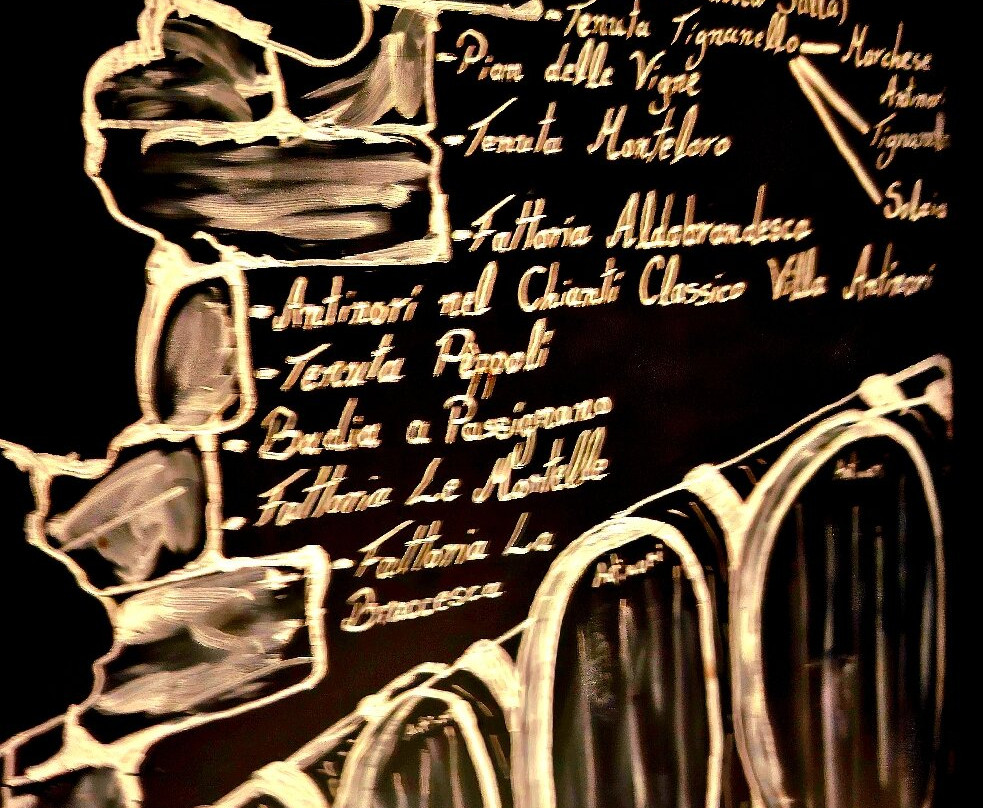 -Tenuta Tignanello - Marchese
Antinori
-Pian delle Vigne
-Tenuta Monteloro
Solaia
-Fattoria Aldobrandesca
-Antinori nel Chianti Classico Villa Antinori
-Tenuta Pèppoli
-Badia a Passignano
-Fattoria Le Mortelle
-Fattoria La
Braccesca
Antinori